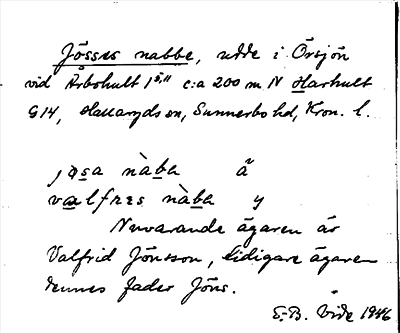 Jösses nabbe, udde i Örsjön
vid Årbohult 1⁵·¹¹ c:a 200 m N Harhult
G14, Hallaryds sn, Sunnerbo hd, Kron. l.
jøsa nàba ã
valfres nàba y
Nuvarande ägaren är
Valfrid Jönsson, tidigare ägaren
dennes fader Jöns.
E.B. Vide 1946